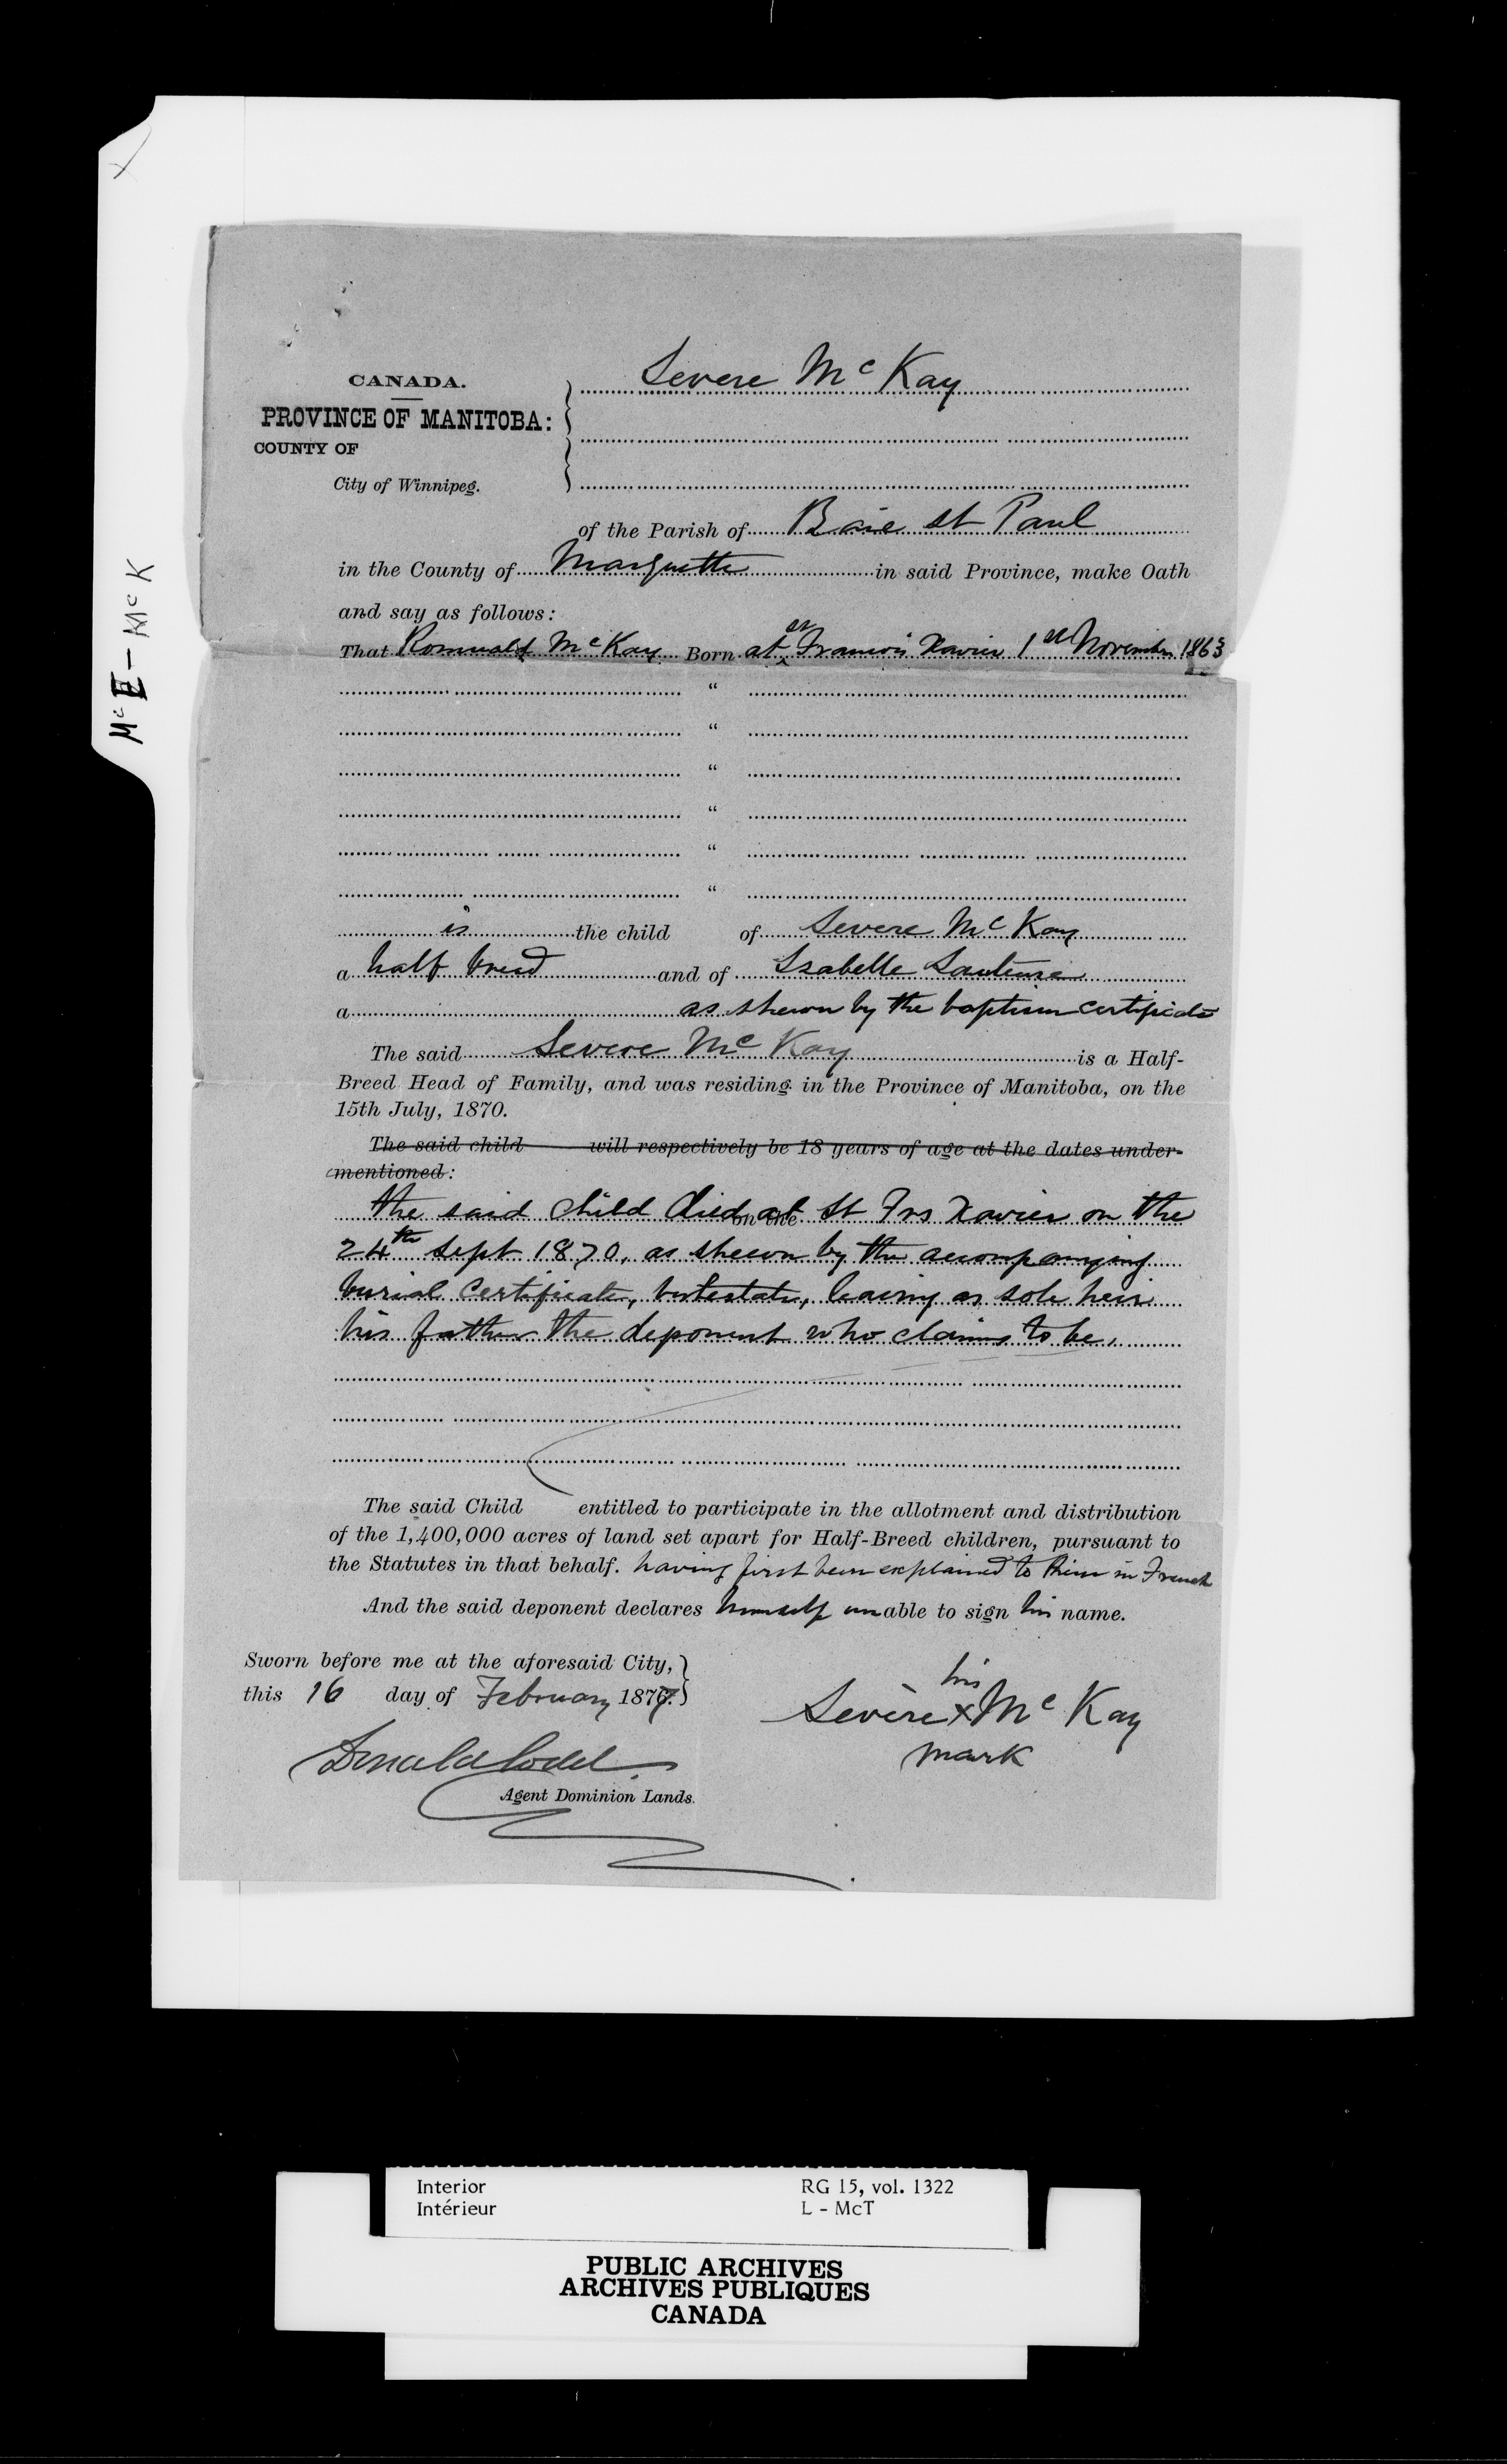 Severe Mc Kay
CANADA.
PROVINCE OF MANITOBA:
COUNTY OF
City of Winnipeg.
of the Parish of Baie St Paul
in the County of Marquette in said Province, make Oath
and say as follows:
That Romuald McKay Born at St Francois Xavier 1st November 1863
"
"
"
"
"
"
is the child of Severe Mc Kay
a half breed and of Isabelle
a as shewn by the baptism certificate
The said Severe Mc Kay is a Half-
Breed Head of Family, and was residing in the Province of Manitoba, on the
15th July, 1870.
The said child will respectively be 18 years of age at the dates under-
mentioned:
on the
the said child died at St Frs Xavier on the
24th Sept 1870, as shewn by the accompanying
burial certificate, intestate, leaving as sole heir
his father the deponent who claims to be,
The said Child entitled to participate in the allotment and distribution
of the 1,400,000 acres of land set apart for Half-Breed children, pursuant to
the Statutes in that behalf. having first been explained to him in French
And the said deponent declares himself unable to sign his name.
Sworn before me at the aforesaid City,
this 16 day of February 1877.
his
Sevère x Mc Kay
mark
Donald Codd
Agent Dominion Lands.
Mc E - Mc K
Interior RG 15, vol. 1322
Intérieur L - McT
PUBLIC ARCHIVES
ARCHIVES PUBLIQUES
CANADA